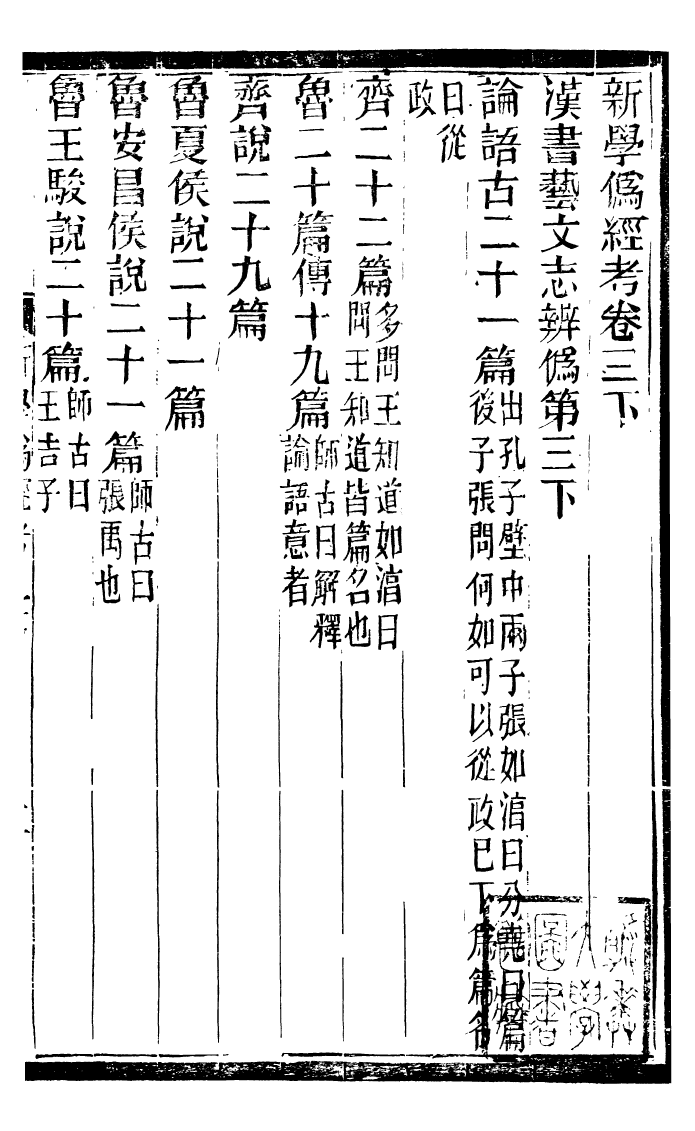 新學僞經考卷三下
漢書藝文志辨僞第三下
論語古二十一篇出孔子壁中兩子張如湻曰分堯曰篇
後子張問何如可以從政已下爲篇名
曰從
政
齊二十二篇多問王知道如湻曰
問王知道皆篇名也
魯二十篇傳十九篇師古曰解釋
論語意者
齊說二十九篇
魯夏侯說二十一篇
魯安昌侯說二十一篇師古曰
張禹也
魯王駿說二十篇師古曰
王吉子